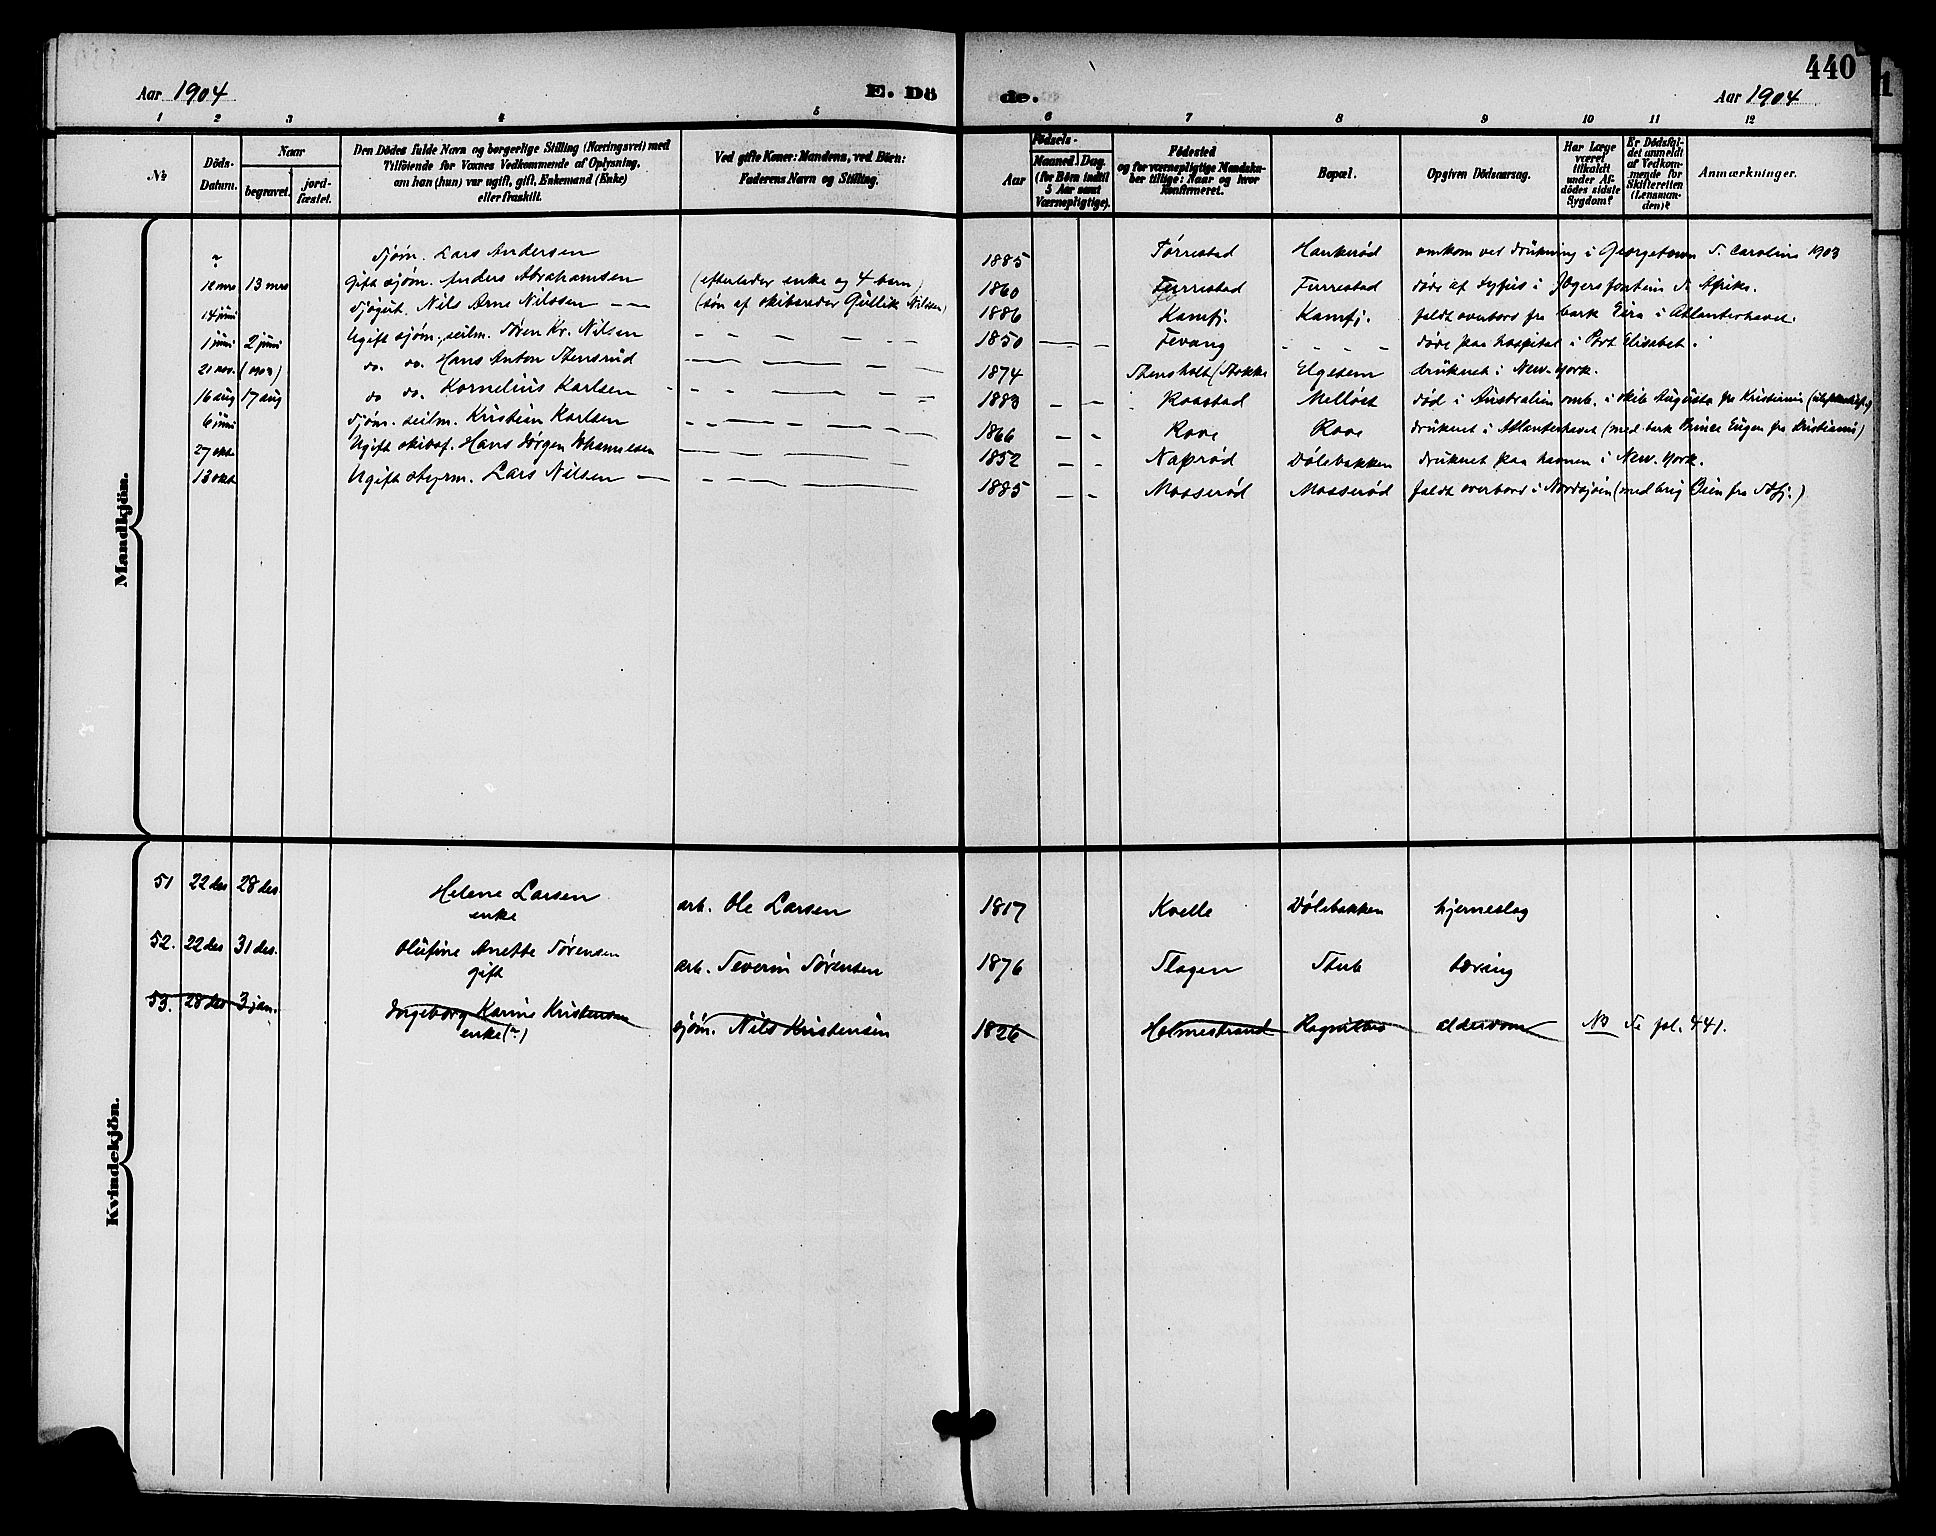 440
Aar 1904
E. Dö
de.
Aar 1904
1 2 3 4 5 6 7 8 9 10 11 12
No
Döds-
Datum.
Naar
begravet.
jord-
fæstet.
Den Dödes fulde Navn og borgerlige Stilling (Næringsvei) med
Tilföiende for Voxnes Vedkommende af Oplysning,
om han (hun) var ugift, gift, Enkemand (Enke)
eller fraskilt.
Ved gifte Koner: Mandens, ved Börn:
Faderens Navn og Stilling.
Födsels-
Aar
Maaned.
Dag.
(for Börn indtil
5 Aar samt
Værnepligtige).
Födested
og for værnepligtige Mandska-
ber tillige: Naar og hvor
konfirmeret.
Bopæl.
Opgiven Dödsaarsag.
Har Læge
været
tilkaldt
under Af-
dödes sidste
Sygdom?
Er Dödsfal-
det anmeldt
af Vedkom-
mende for
Skifteretten
(Lensman-
den)?
Anmærkninger.
Mandkjön.
? Sjøm. Lars Andersen 1885 Tørrestad Haukerød omkom ved drükning i Georgetown S. Carolina 1903
12 mrs 13 mrs Gift sjøm. Anders Abrahamsen (efterlader enke og 4 barn) 1860 Furrestad Furrestad døde af tyfüs i S. Afrika.
14 juni Nils Arne Nilssen (søn af skibsreder Güllik Nilssen) 1886 Kamfj. Kamfj. faldt overbord fra bark Eira i Atlanterhavet.
1 juni 2 juni Ugift sjøm., seilm. Søren Kr. Nilsen 1850 Fevang døde paa hospital i Port Elisabet.
21 nov. (1903) do. do. Hans Anton Stensrüd 1874 Stensholt (Stokke Elgesem drüknet i New-York.
16 aug 17 aug do do. Kornelius Karlsen 1883 Raastad Melløst død i Aüstralien omb. i skib Augusta fra Kristiania
6 juni Sjøm. seilm. Kristian Karlsen 1866 Rove Rove drüknet i Atlanterhavet (med bark Prince Eugen fra Kristiania)
27 okt Ugift skibsf. Hans Jørgen Johannessen 1852 Naprød Dølebakken drüknet paa havnen i New-York.
13 okt Ugift styrm. Lars Nilsen 1885 Moserød Moserød faldt overbord i Nordsjøen (med brig Oien fra Sdfj.)
Kvindekjön.
51 22 des 28 des Helene Larsen arb. Ole Larsen 1817 Kvelle Dølebakken hjerneslag
enke
52. 22 des 31 des. Olüfine Anette Sørensen arb. Severin Sørensen 1876 Slagen Stüb tæring
gift
53. 28 des 3 jan. Ingeborg Karine Kristensen sjøm. Nils Kristensen 1826 Holmestrand alderdom NB Se fol. 441.
enke (?)